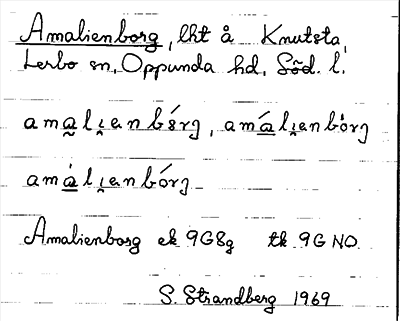 Amalienborg, lht å Knutsta,
Lerbo sn, Oppunda hd, Söd. l.
amaliẹnbórg, amáliẹnbòrg
amàliẹnbórg
Amalienborg ek 9G8g tk 9G NO
S. Strandberg 1969